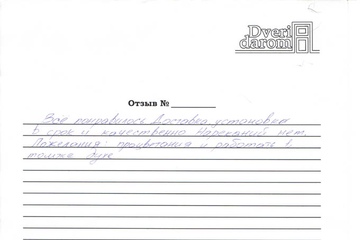 Dveri
darom
Отзыв № ______
Все понравилось Доставка установка
в срок и качественно Нареканий нет.
Пожелания: процветания и работать в
том же духе